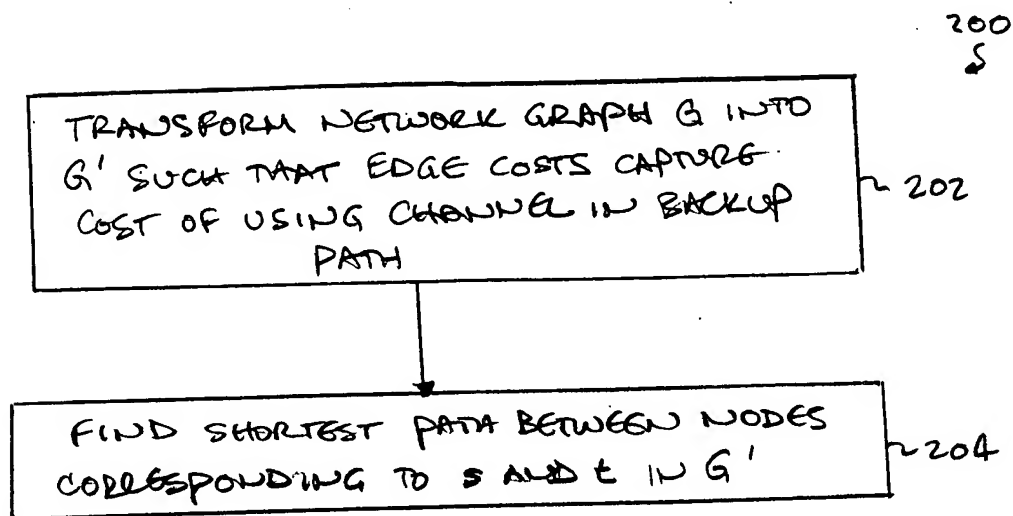 200
TRANSFORM NETWORK GRAPH G INTO
G' SUCH THAT EDGE COSTS CAPTURE
COST OF USING CHANNEL IN BACKUP
PATH
202
FIND SHORTEST PATH BETWEEN NODES
CORRESPONDING TO s AND t IN G'
204